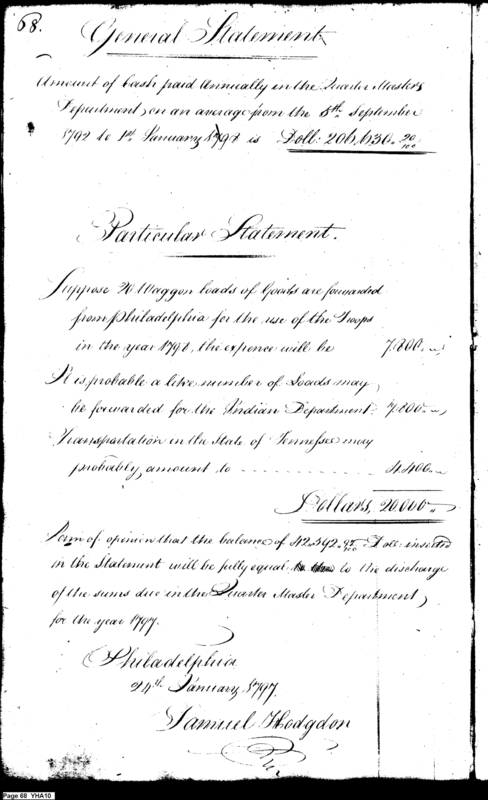 68.
General Statement
Amount of Cash paid Annually in the Quarter Masters
Department, on an average from the 8th September
1792 to 1st January 1798 is Doll: 206,636 20/100
Particular Statement.
Suppose 20 Waggon loads of Goods are forwarded
from Philadelphia for the use of the Troops
in the year 1798, the expence will be 7.800
It is probable a like number of Loads may
be forwarded for the Indian Department 7.800
Transportation in the State of Tennessee may
probably, amount to 4.400
Dollars, 20,000
I am of opinion that the balance of 42.592 Doll: inserted
in the Statement will be fully equal to the discharge
of the sums due in the Quarter Master Department,
for the year 1797.
Philadelphia
24th January 1797.
Samuel Hodgdon
Page 68 YHA10